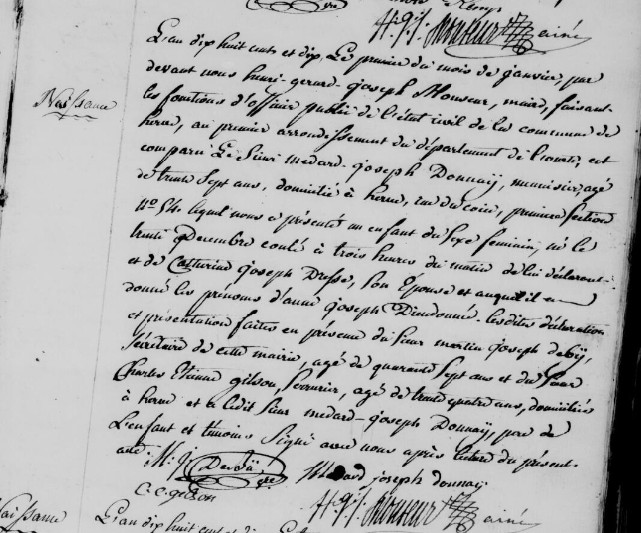 H. G. J. Monseur ainé
Naissance
L'an dix huit cents et dix, Le premier du mois de janvier, par
devant nous henri-gerard-joseph Monseur, maire, faisant
les fonctions d'officier public de l'état civil de la commune de
herve, au premier arrondissement du département de l'ourte, est
comparu Le Sieur medard-joseph Donnay, menuisier, agé
de trente sept ans, domicilié à herve, rue du coin, première section
N.° 54. lequel nous a présenté un enfant du sexe feminin, né le
trente Decembre coulé à trois heures du matin de lui déclarant
et de Catherine joseph Dresse, son Epouse et auquel il a
donné les prénoms d'anne joseph Dieudonné. lesdites déclaration
et présentation faites en présence du Sieur martin joseph
Sécrétaire de cette mairie, agé de quarante sept ans et du Sieur
Charles Etienne gilson, Serrurier, agé de trente quatre ans, domiciliés
à herve et a ledit Sieur medard-joseph Donnay, pere de
L'enfant et témoins Signé avec nous après lecture du présent.
acte. M. J.
Medard joseph donnay
C. E. gilson
H. G. J. Monseur ainé
Naissance
L'an dix huit cents et dix